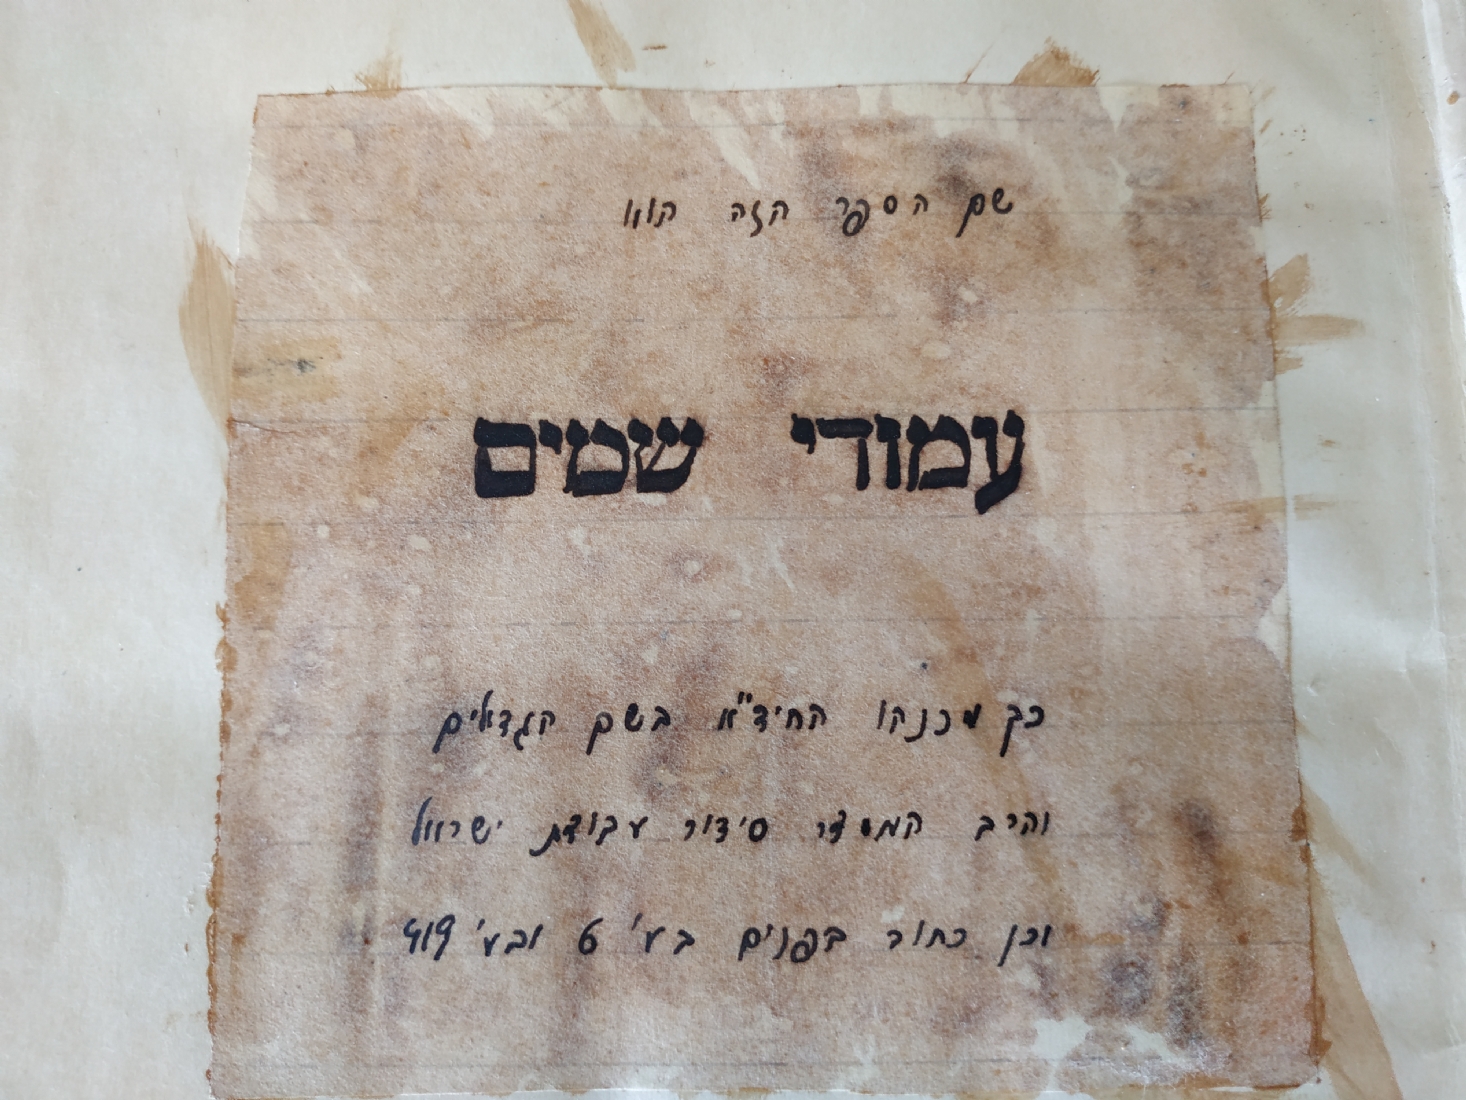 שם הספר הזה הוא
עמודי שמים
כך מכנהו החיד"א בשם הגדולים
והרב המסדר סידור עבודת ישראל
וכן כתוב בפנים בע' 6 ובע'